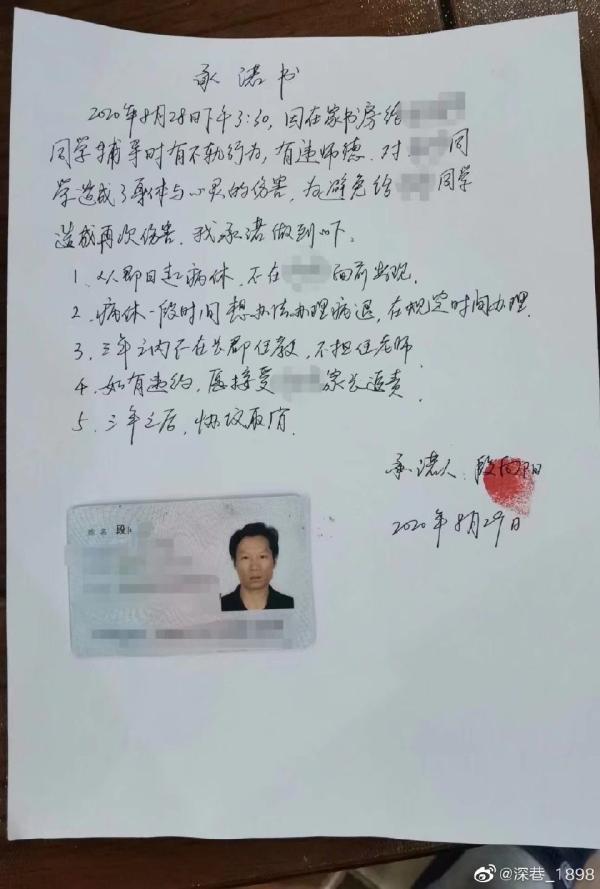 承诺书
2020年8月28日下午3:30，因在家书房给
同学辅导时有不轨行为，有违师德．对 同
学造成了身体与心灵的伤害，为避免给 同学
造成再次伤害．我承诺做到以下：
1、从即日起病休，不在 面前出现．
2、病休一段时间想办法办理病退，在规定时间办理．
3、三年之内不在长郡任教，不担任老师
4、如有违约，愿接受 家长追责．
5、三年之后，协议取消．
承诺人：段向阳
2020年8月29日
姓名 段
@深巷_1898